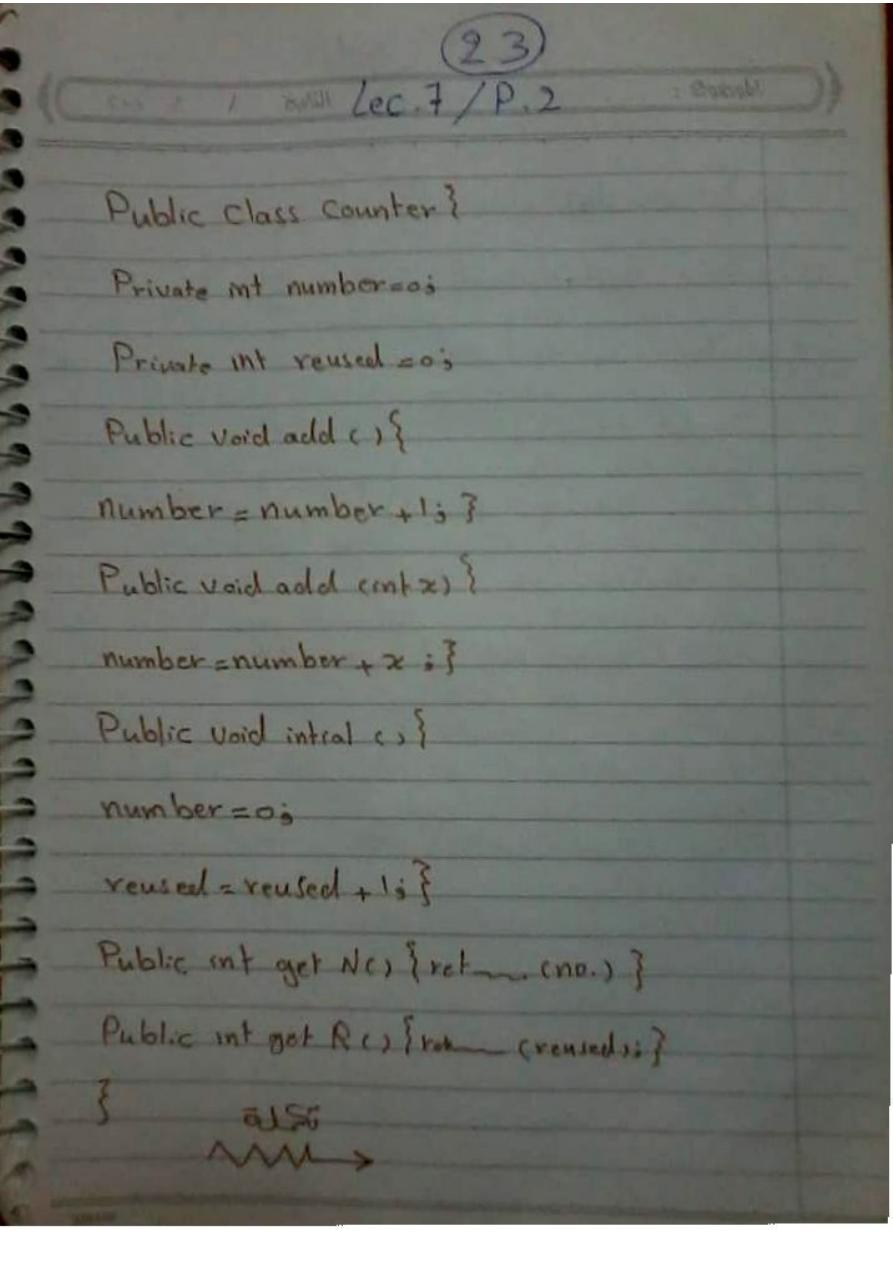 23
Lec.7 / P.2
Public class Counter }
Private int number=0;
Private int reused =0;
Public void add () {
number = number + 1; }
Public void add (int x) {
number = number + x ; }
Public void intial () {
number = 0;
reused = reused + 1; }
Public int get N() { ret (no.) }
Public int get R() { ret (reused); }
}
تكملة